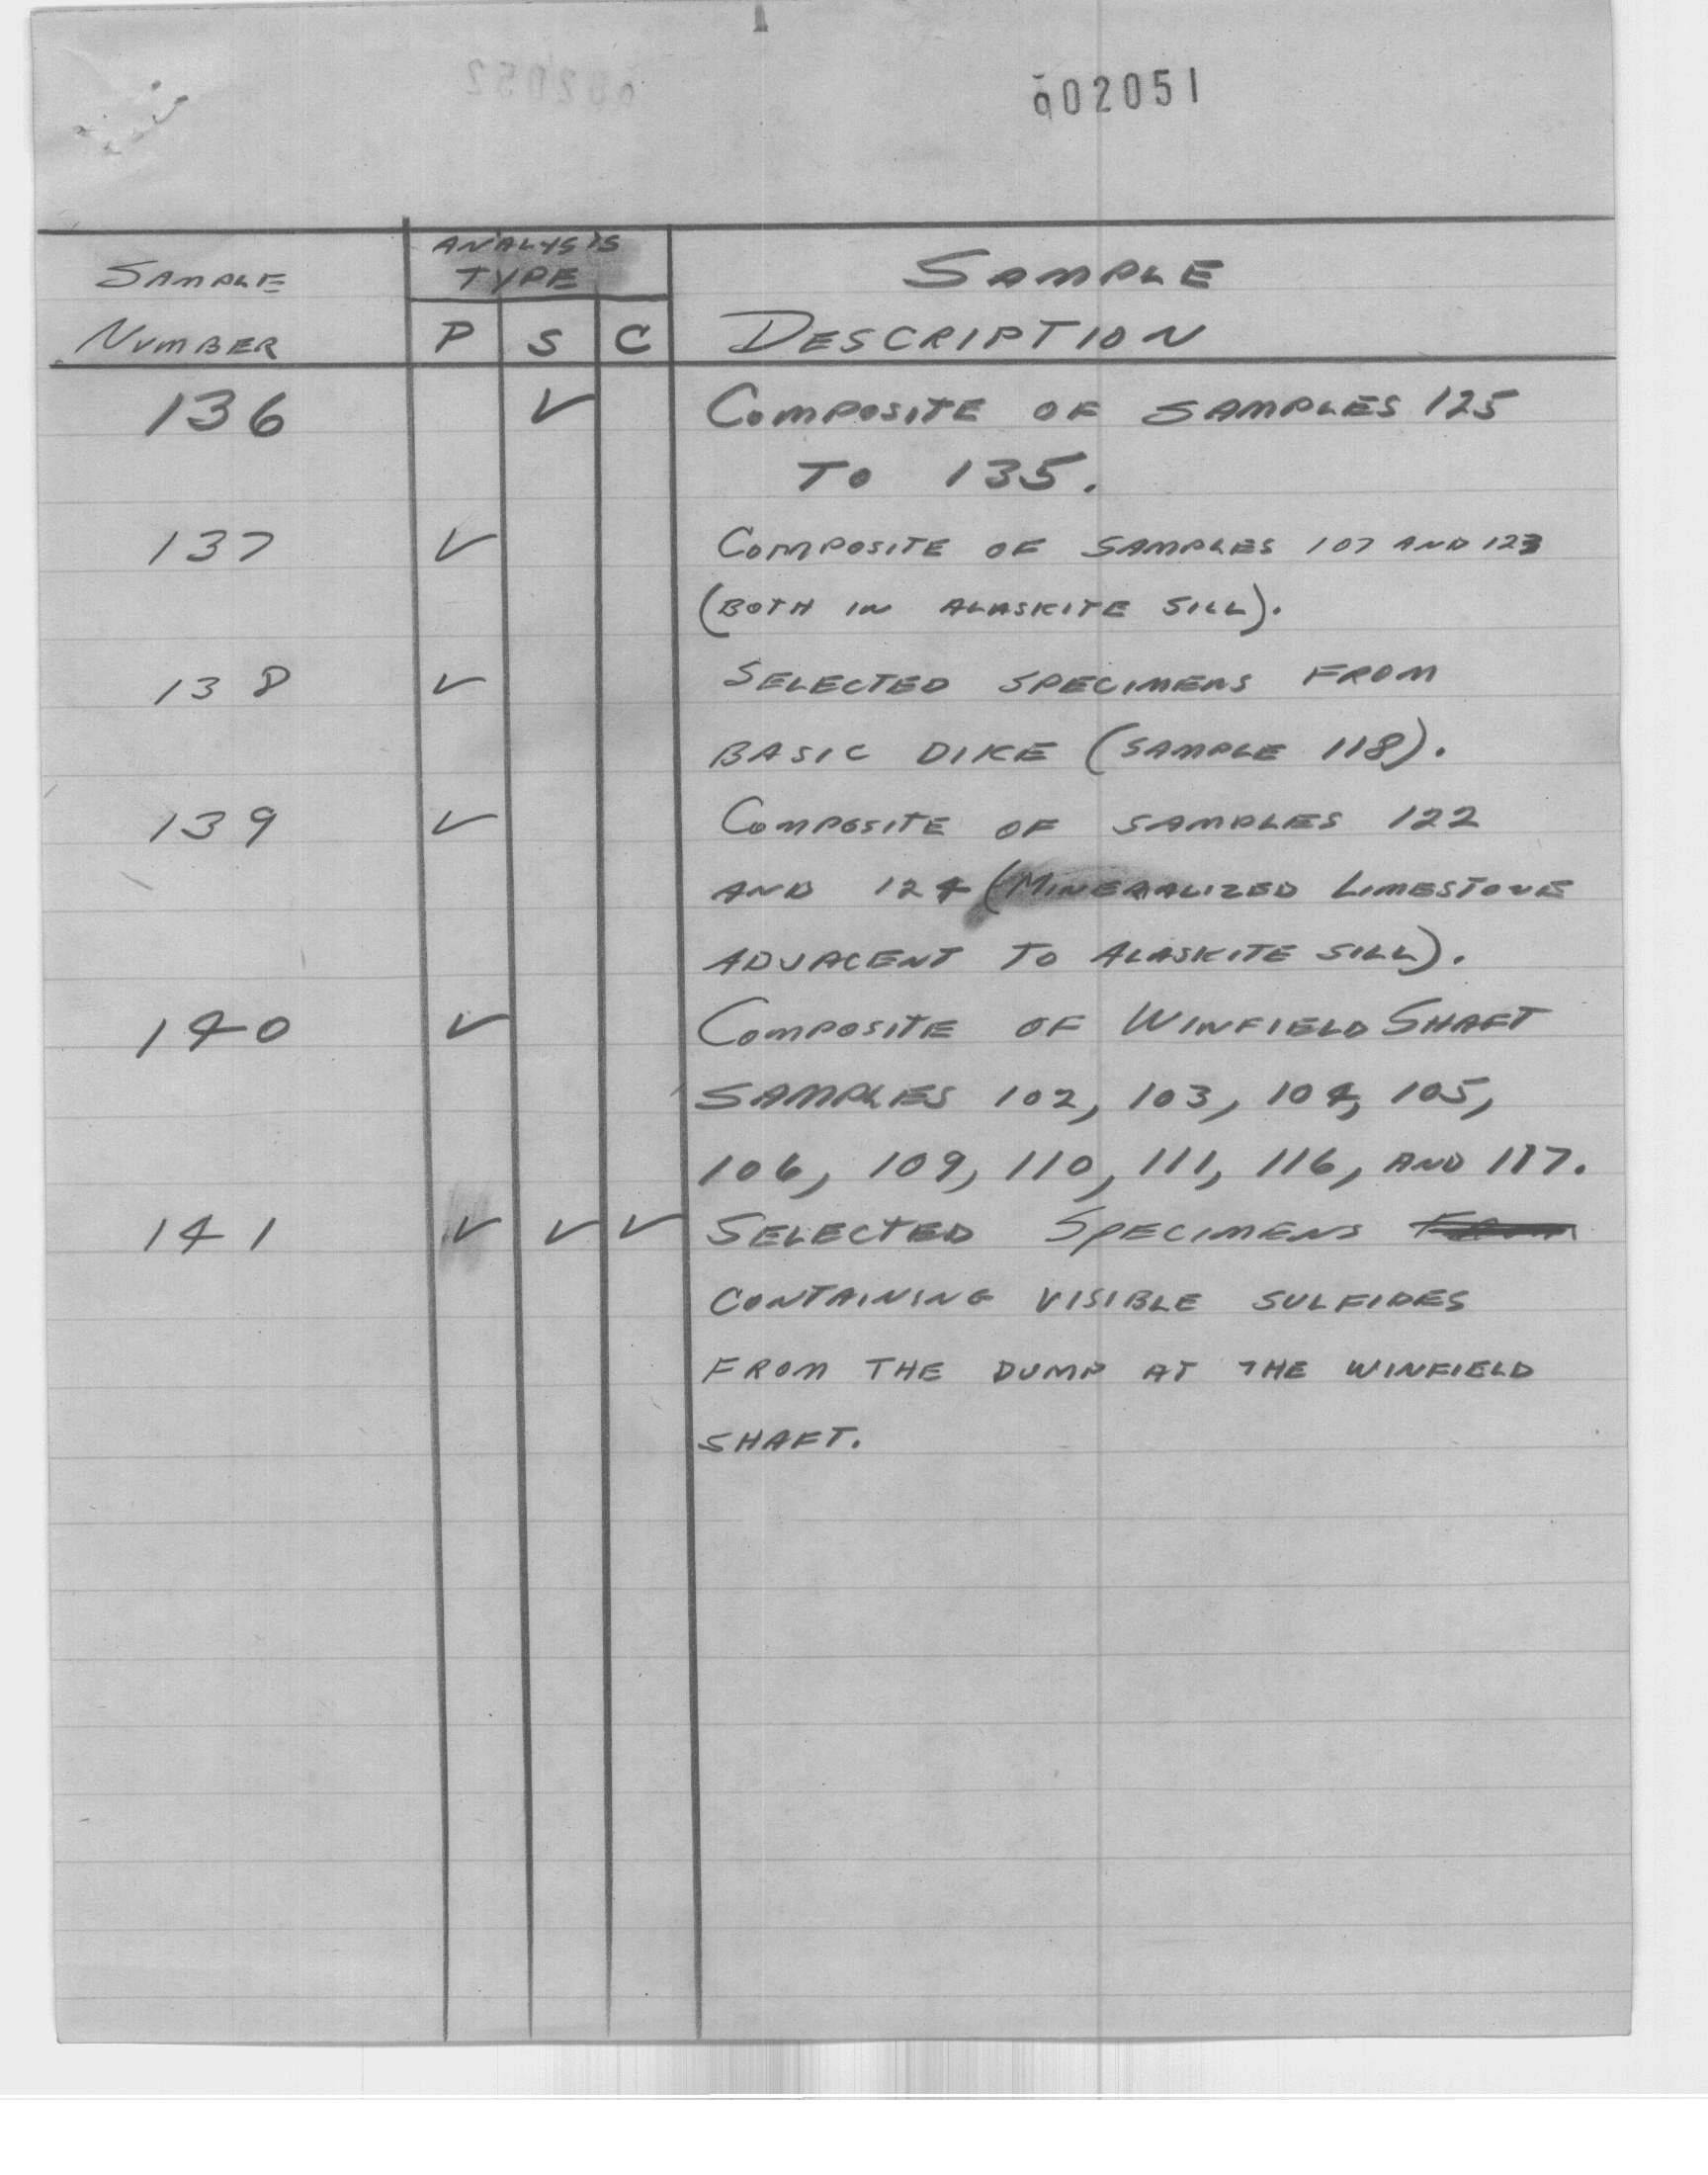 002051
ANALYSIS
SAMPLE TYPE SAMPLE
NUMBER P S C DESCRIPTION
136 ✓ COMPOSITE OF SAMPLES 125
TO 135.
137 ✓ COMPOSITE OF SAMPLES 107 AND 123
(BOTH IN ALASKITE SILL).
138 ✓ SELECTED SPECIMENS FROM
BASIC DIKE (SAMPLE 118).
139 ✓ COMPOSITE OF SAMPLES 122
AND 124 (MINERALIZED LIMESTONE
ADJACENT TO ALASKITE SILL).
140 ✓ COMPOSITE OF WINFIELD SHAFT
SAMPLES 102, 103, 104, 105,
106, 109, 110, 111, 116, AND 117.
141 ✓ ✓ ✓ SELECTED SPECIMENS
CONTAINING VISIBLE SULFIDES
FROM THE DUMP AT THE WINFIELD
SHAFT.